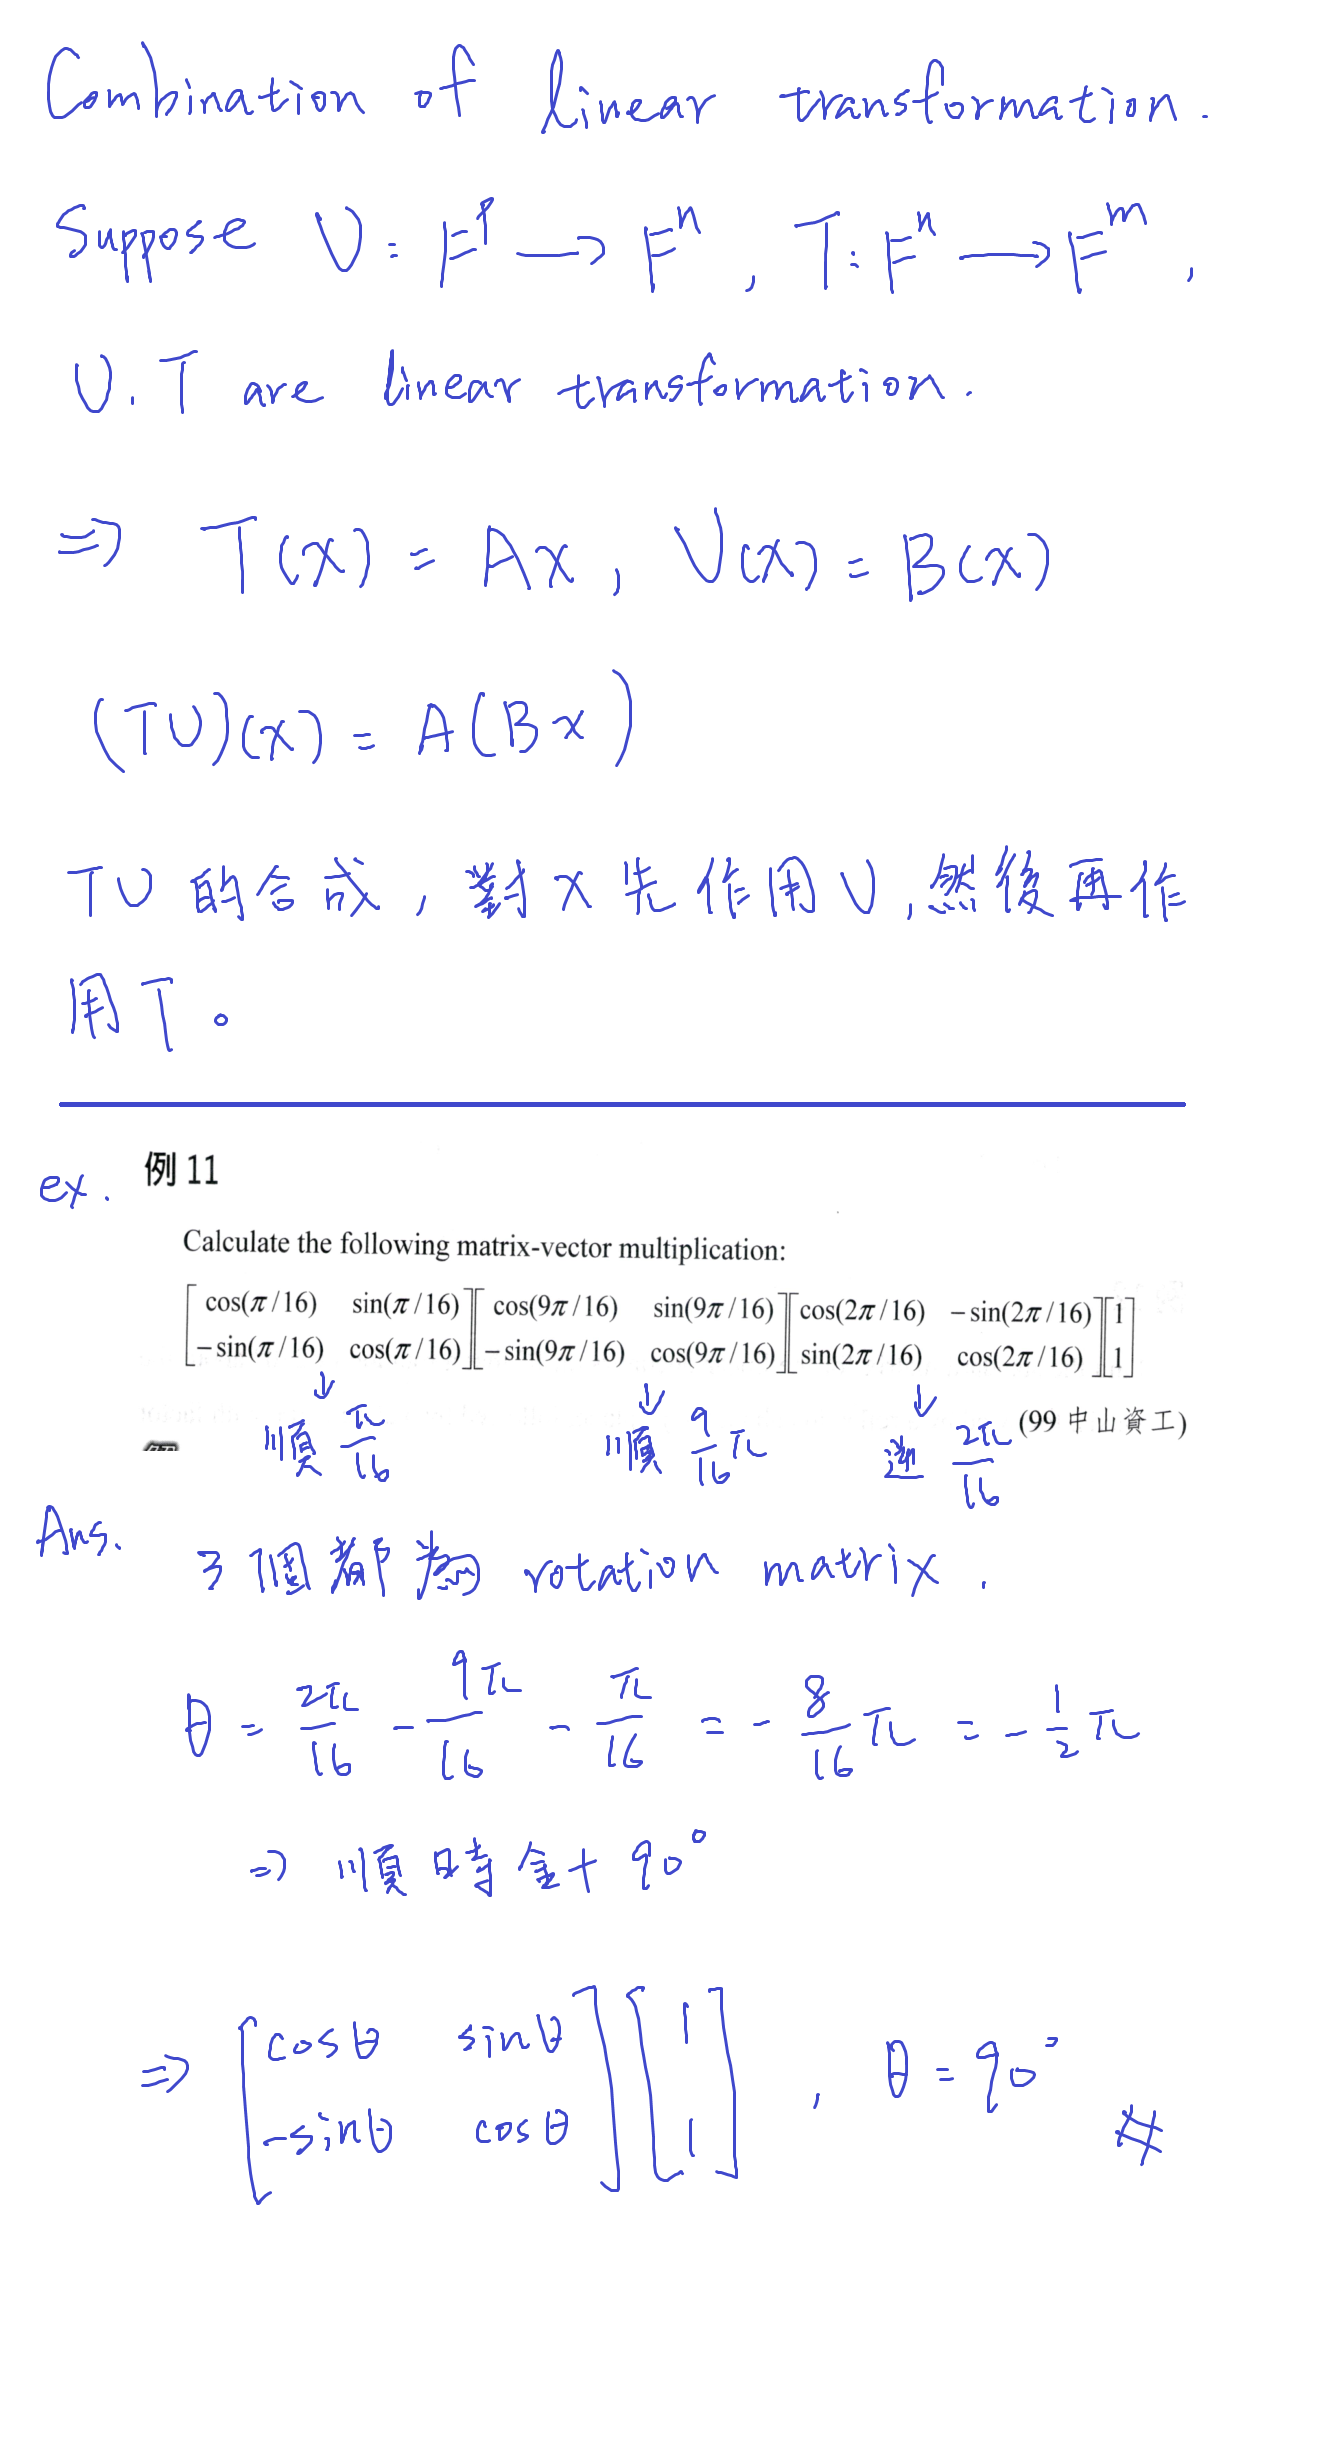 Combination of linear transformation.
Suppose U: F^p → F^n, T: F^n → F^m,
U. T are linear transformation.
⇒ T(x) = Ax, U(x) = B(x)
(TU)(x) = A(Bx)
TU 的合成, 對 x 先作用 U, 然後再作
用 T。
ex. 例 11
Calculate the following matrix-vector multiplication:
[cos(π/16) sin(π/16)] [cos(9π/16) sin(9π/16)] [cos(2π/16) −sin(2π/16)] [1]
[−sin(π/16) cos(π/16)] [−sin(9π/16) cos(9π/16)] [sin(2π/16) cos(2π/16)] [1]
↓ ↓ ↓
順 π/16 順 9/16 π 逆 2π/16 (99 中山資工)
Ans. 3個都為 rotation matrix.
θ = 2π/16 - 9π/16 - π/16 = - 8/16 π = - 1/2 π
⇒ 順時針 90°
⇒ [cosθ sinθ] [1]
[-sinθ cosθ] [1] , θ = 90° #